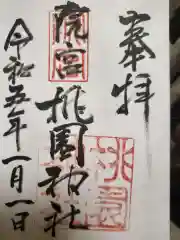 奉拝
虎宮
桃園神社
令和五年一月一日